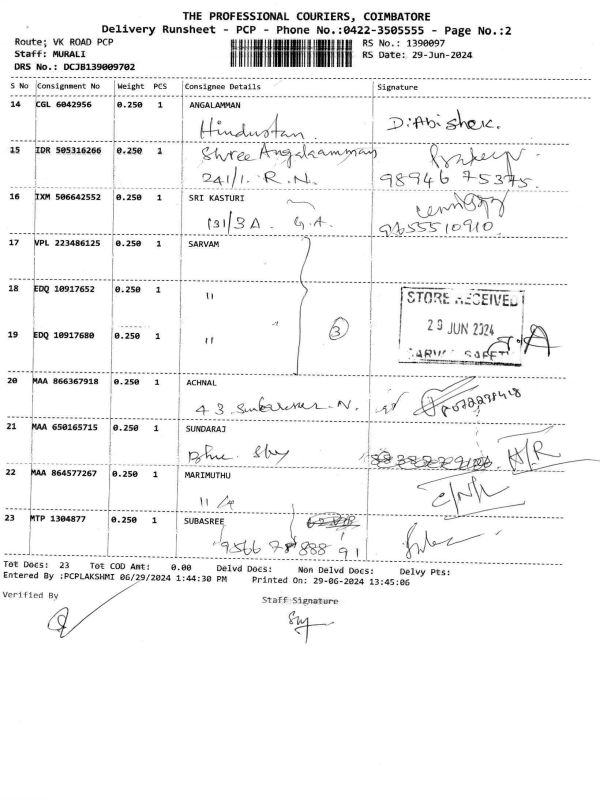 THE PROFESSIONAL COURIERS, COIMBATORE
Delivery Runsheet - PCP - Phone No.:0422-3505555 - Page No.:2
Route; VK ROAD PCP
RS No.: 1390097
Staff: MURALI
RS Date: 29-Jun-2024
DRS No.: DCJB139009702
S No Consignment No Weight PCS Consignee Details Signature
14 CGL 6042956 0.250 1 ANGALAMMAN
Hindustan D. Abishek.
15 IDR 505316266 0.250 1 Shree Angalaamman
241/1. R.N. 98946 75375.
16 IXM 506642552 0.250 1 SRI KASTURI
131/3A. G.A. 9655510910.
17 VPL 223486125 0.250 1 SARVAM
18 EDQ 10917652 0.250 1
"
STORE RECEIVED
29 JUN 2024
19 EDQ 10917680 0.250 1
" 3
20 MAA 866367918 0.250 1 ACHNAL
43 N.
21 MAA 650165715 0.250 1 SUNDARAJ
Blue Sky A/R
22 MAA 864577267 0.250 1 MARIMUTHU
23 MTP 1304877 0.250 1 SUBASREE
9566 78 888 91
Tot Docs: 23 Tot COD Amt: 0.00 Delvd Docs: Non Delvd Docs: Delvy Pts:
Entered By :PCPLAKSHMI 06/29/2024 1:44:30 PM Printed On: 29-06-2024 13:45:06
Verified By
Staff Signature